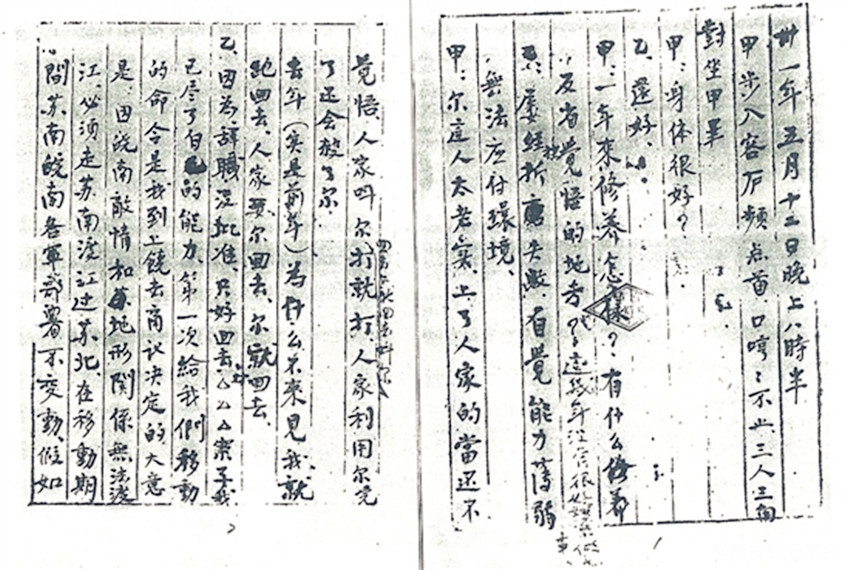 卅一年五月十二日晚上八時半
甲步入客厅頻点首口哼哼不止三人三角
對坐甲至
甲：身体很好？
乙、還好、
甲：一年來修养怎樣？有什么修养
反省覺悟的地方？這幾年
屡經折磨失敗自覺能力薄弱
無法应付環境、
甲：尔這人太老实、上了人家的當還不
覚悟、人家叫尔打就打人家利用尔完
了还会放了尔、
去年（实是前年）為什么不來見我、就
跑回去、人家要尔回去、尔就回去、
乙、因為辞職没批准、只好回去、
已尽了自己的能力、第一次給我們移動
的命令是我到上饒去商议决定的大意
是、因皖南敵情和地形関係無法渡
江、必須走苏南渡江过苏北在移動期
間苏南皖南各軍部署不变動、假如